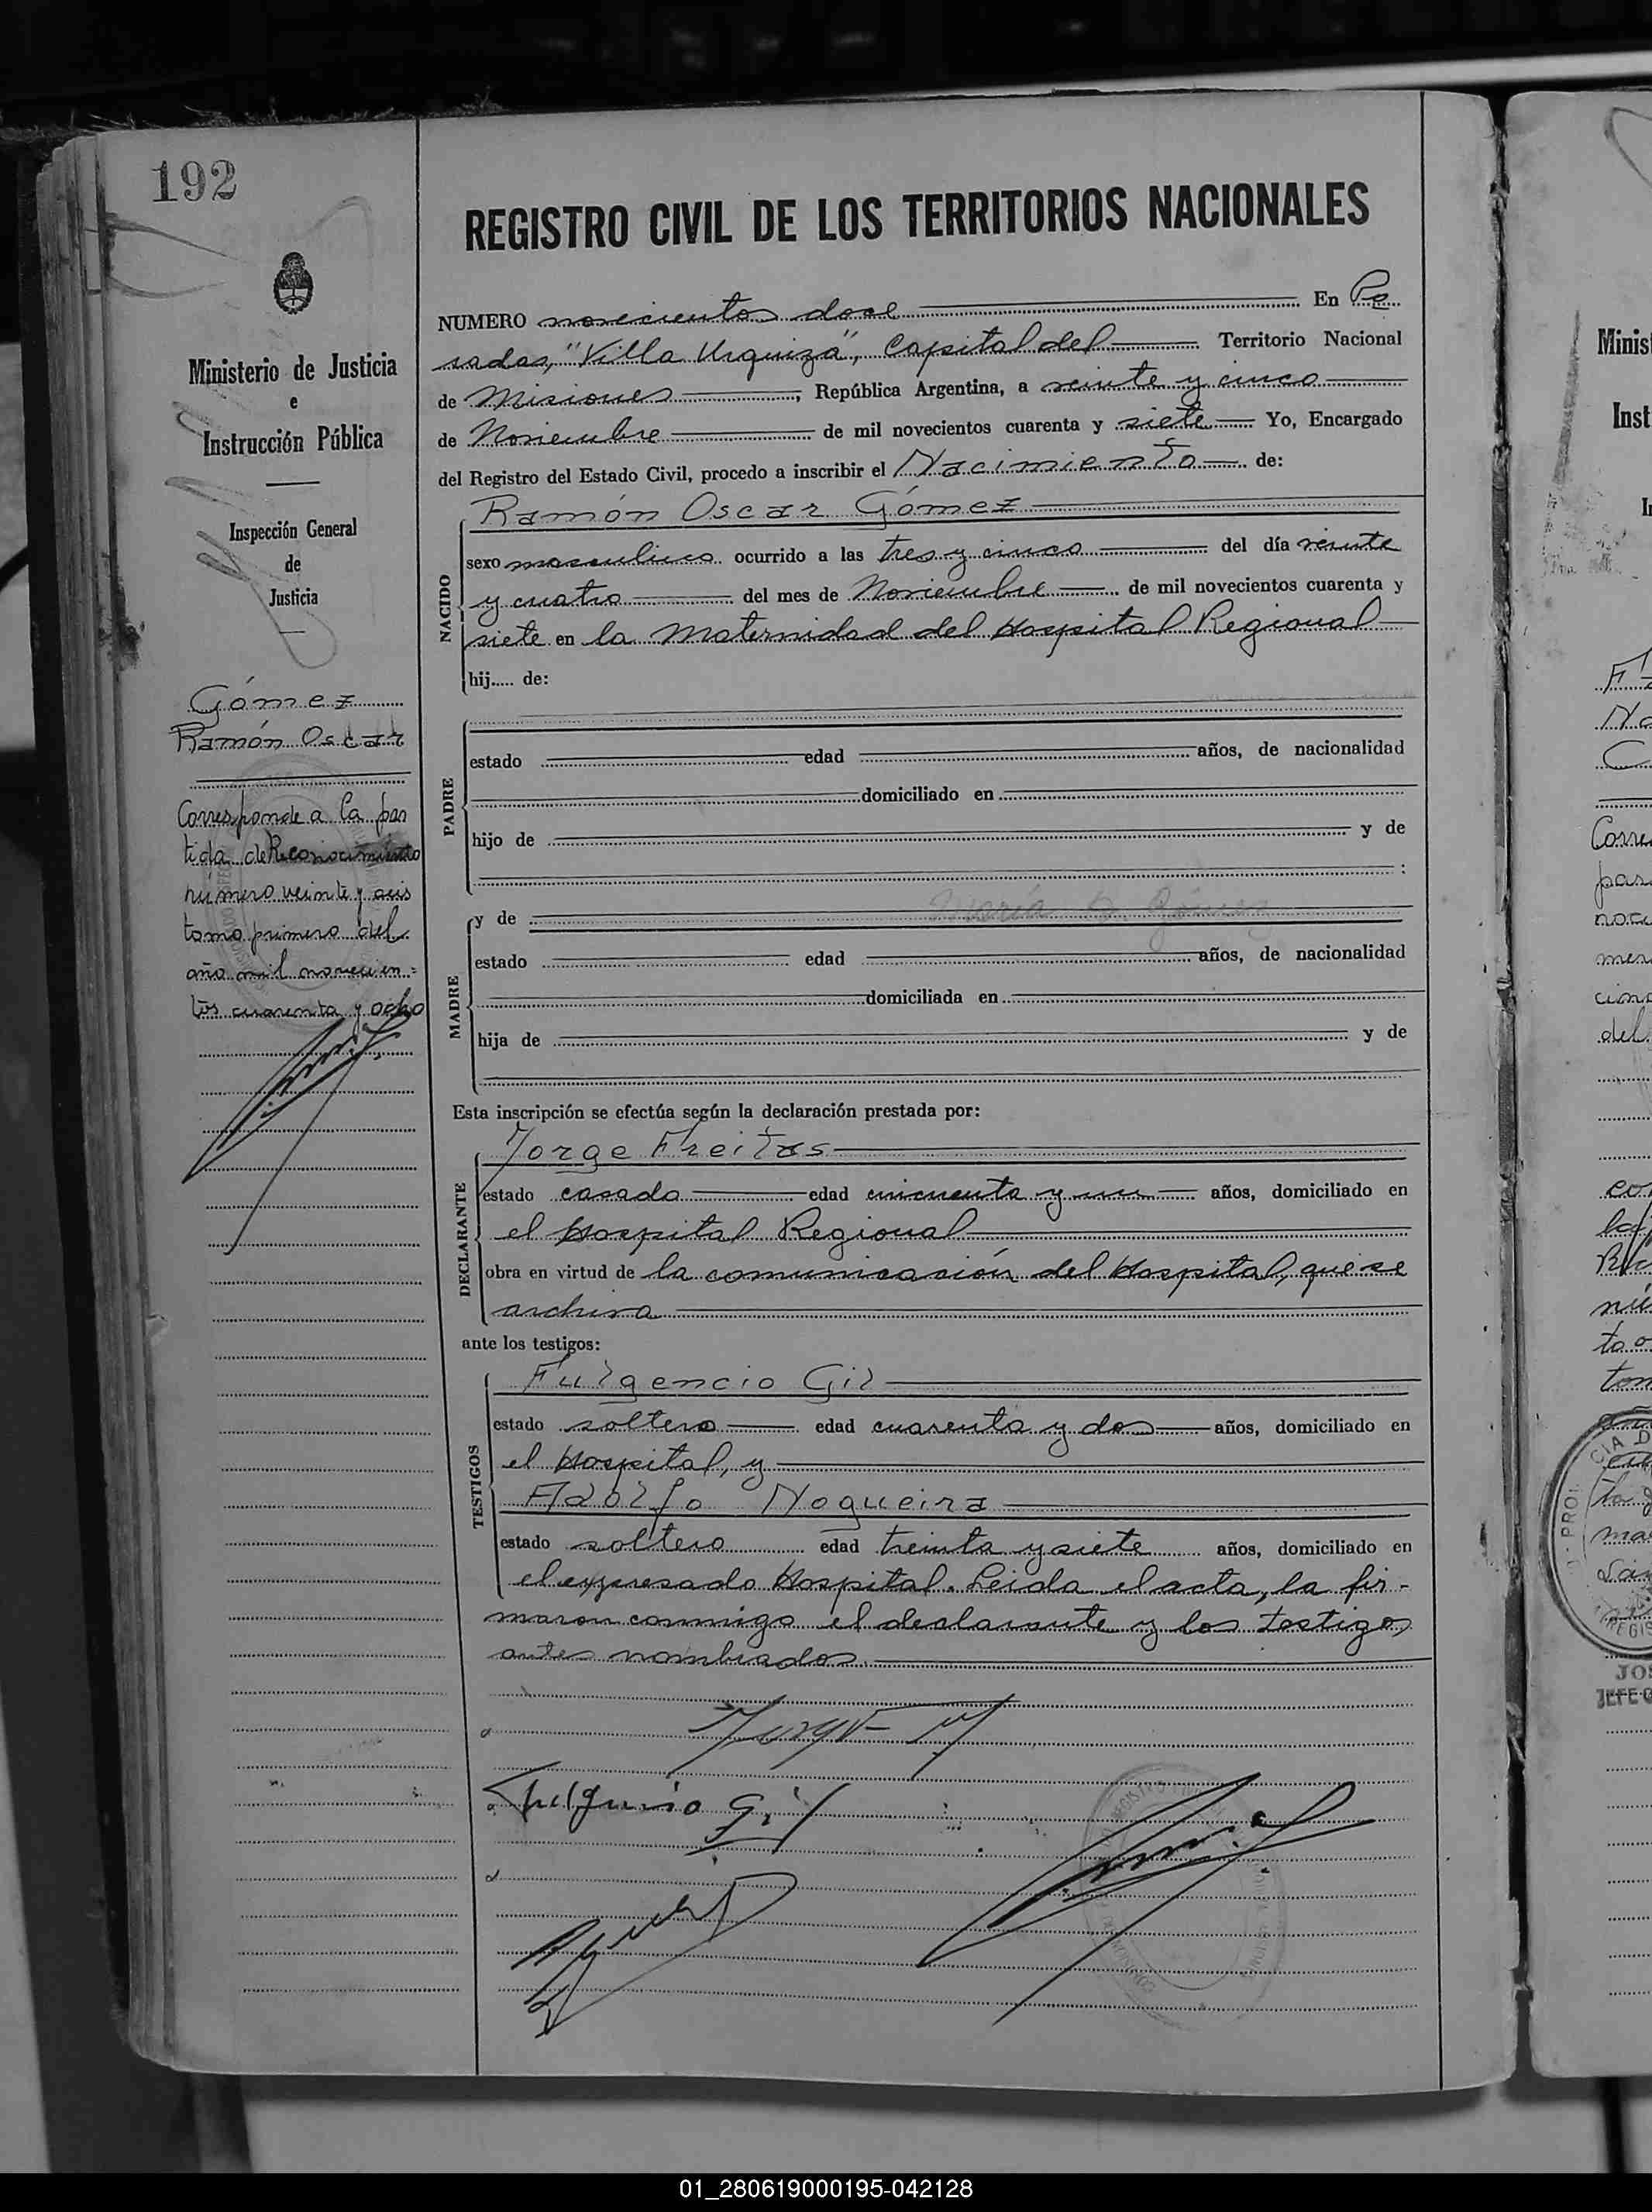 192
REGISTRO CIVIL DE LOS TERRITORIOS NACIONALES
Ministerio de Justicia
e
Instrucción Pública
Inspección General
de
Justicia
Gómez
Ramón Oscar
Corresponde a la par
tida de Reconocimiento
número veinte y seis
tomo primero del
año mil novecien=
tos cuarenta y ocho
NUMERO novecientos doce En Po
sadas, "Villa Urquiza", Capital del Territorio Nacional
de Misiones, República Argentina, a veinte y cinco
de Noviembre de mil novecientos cuarenta y siete Yo, Encargado
del Registro del Estado Civil, procedo a inscribir el Nacimiento de:
NACIDO
Ramón Oscar Gómez
sexo masculino ocurrido a las tres y cinco del día veinte
y cuatro del mes de Noviembre de mil novecientos cuarenta y
siete en la Maternidad del Hospital Regional
hij..... de:
PADRE
estado edad años, de nacionalidad
domiciliado en
hijo de y de
:
MADRE
y de María Gómez
estado edad años, de nacionalidad
domiciliada en
hija de y de
Esta inscripción se efectúa según la declaración prestada por:
DECLARANTE
Jorge Freitas
estado casado edad cincuenta y un años, domiciliado en
el Hospital Regional
obra en virtud de la comunicación del Hospital, que se
archiva
ante los testigos:
TESTIGOS
Fulgencio Gil
estado soltero edad cuarenta y dos años, domiciliado en
el Hospital, y
Adolfo Nogueira
estado soltero edad treinta y siete años, domiciliado en
el expresado Hospital. Leida el acta, la fir-
maron conmigo el declarante y los testigos
antes nombrados.
Fulgencio Gil
Minis
Inst
Corre
par
del
JEFE
01_280619000195-042128